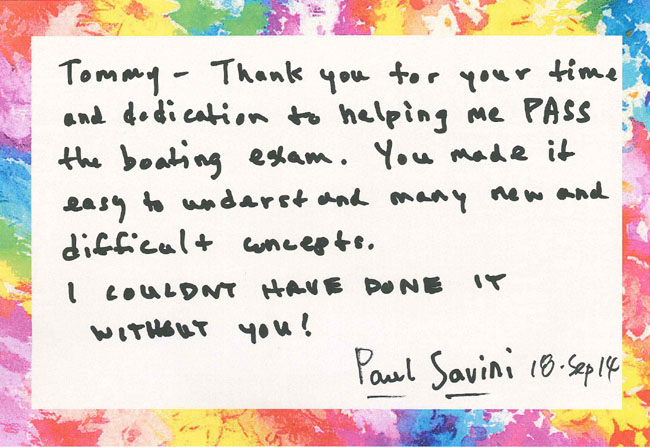 Tommy - Thank you for your time
and dedication to helping me PASS
the boating exam. You made it
easy to understand many new and
difficult concepts.
I COULDNT HAVE DONE IT
WITHOUT YOU!
Paul Savini 18-Sep 14